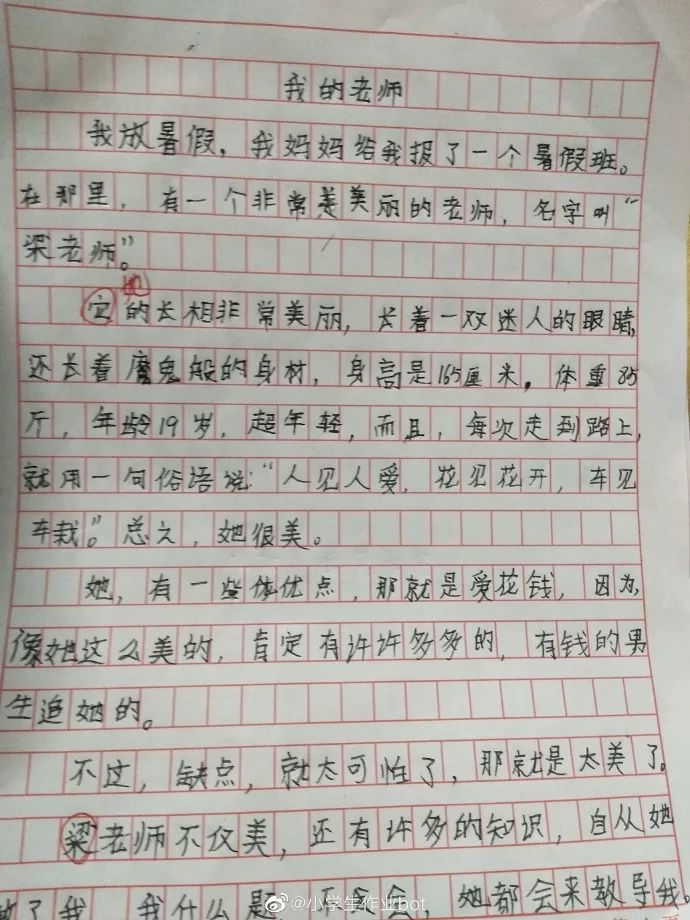 我的老师
我放暑假，我妈妈给我报了一个暑假班。
在那里，有一个非常美丽的老师，名字叫“
梁老师”。
她
它的长相非常美丽，长着一双迷人的眼睛，
还长着魔鬼般的身材，身高是165厘米，体重85
斤，年龄19岁，超年轻，而且，每次走到路上，
就用一句俗语说：“人见人爱，花见花开，车见
车栽”。总之，她很美。
她，有一些优点，那就是爱花钱，因为，
像她这么美的，肯定有许许多多的，有钱的男
生追她的。
不过，缺点，就太可怕了，那就是太美了。
梁老师不仅美，还有许多的知识，自从她
了我，我什么题，不会，她都会来教导我。
@小学生作业bot